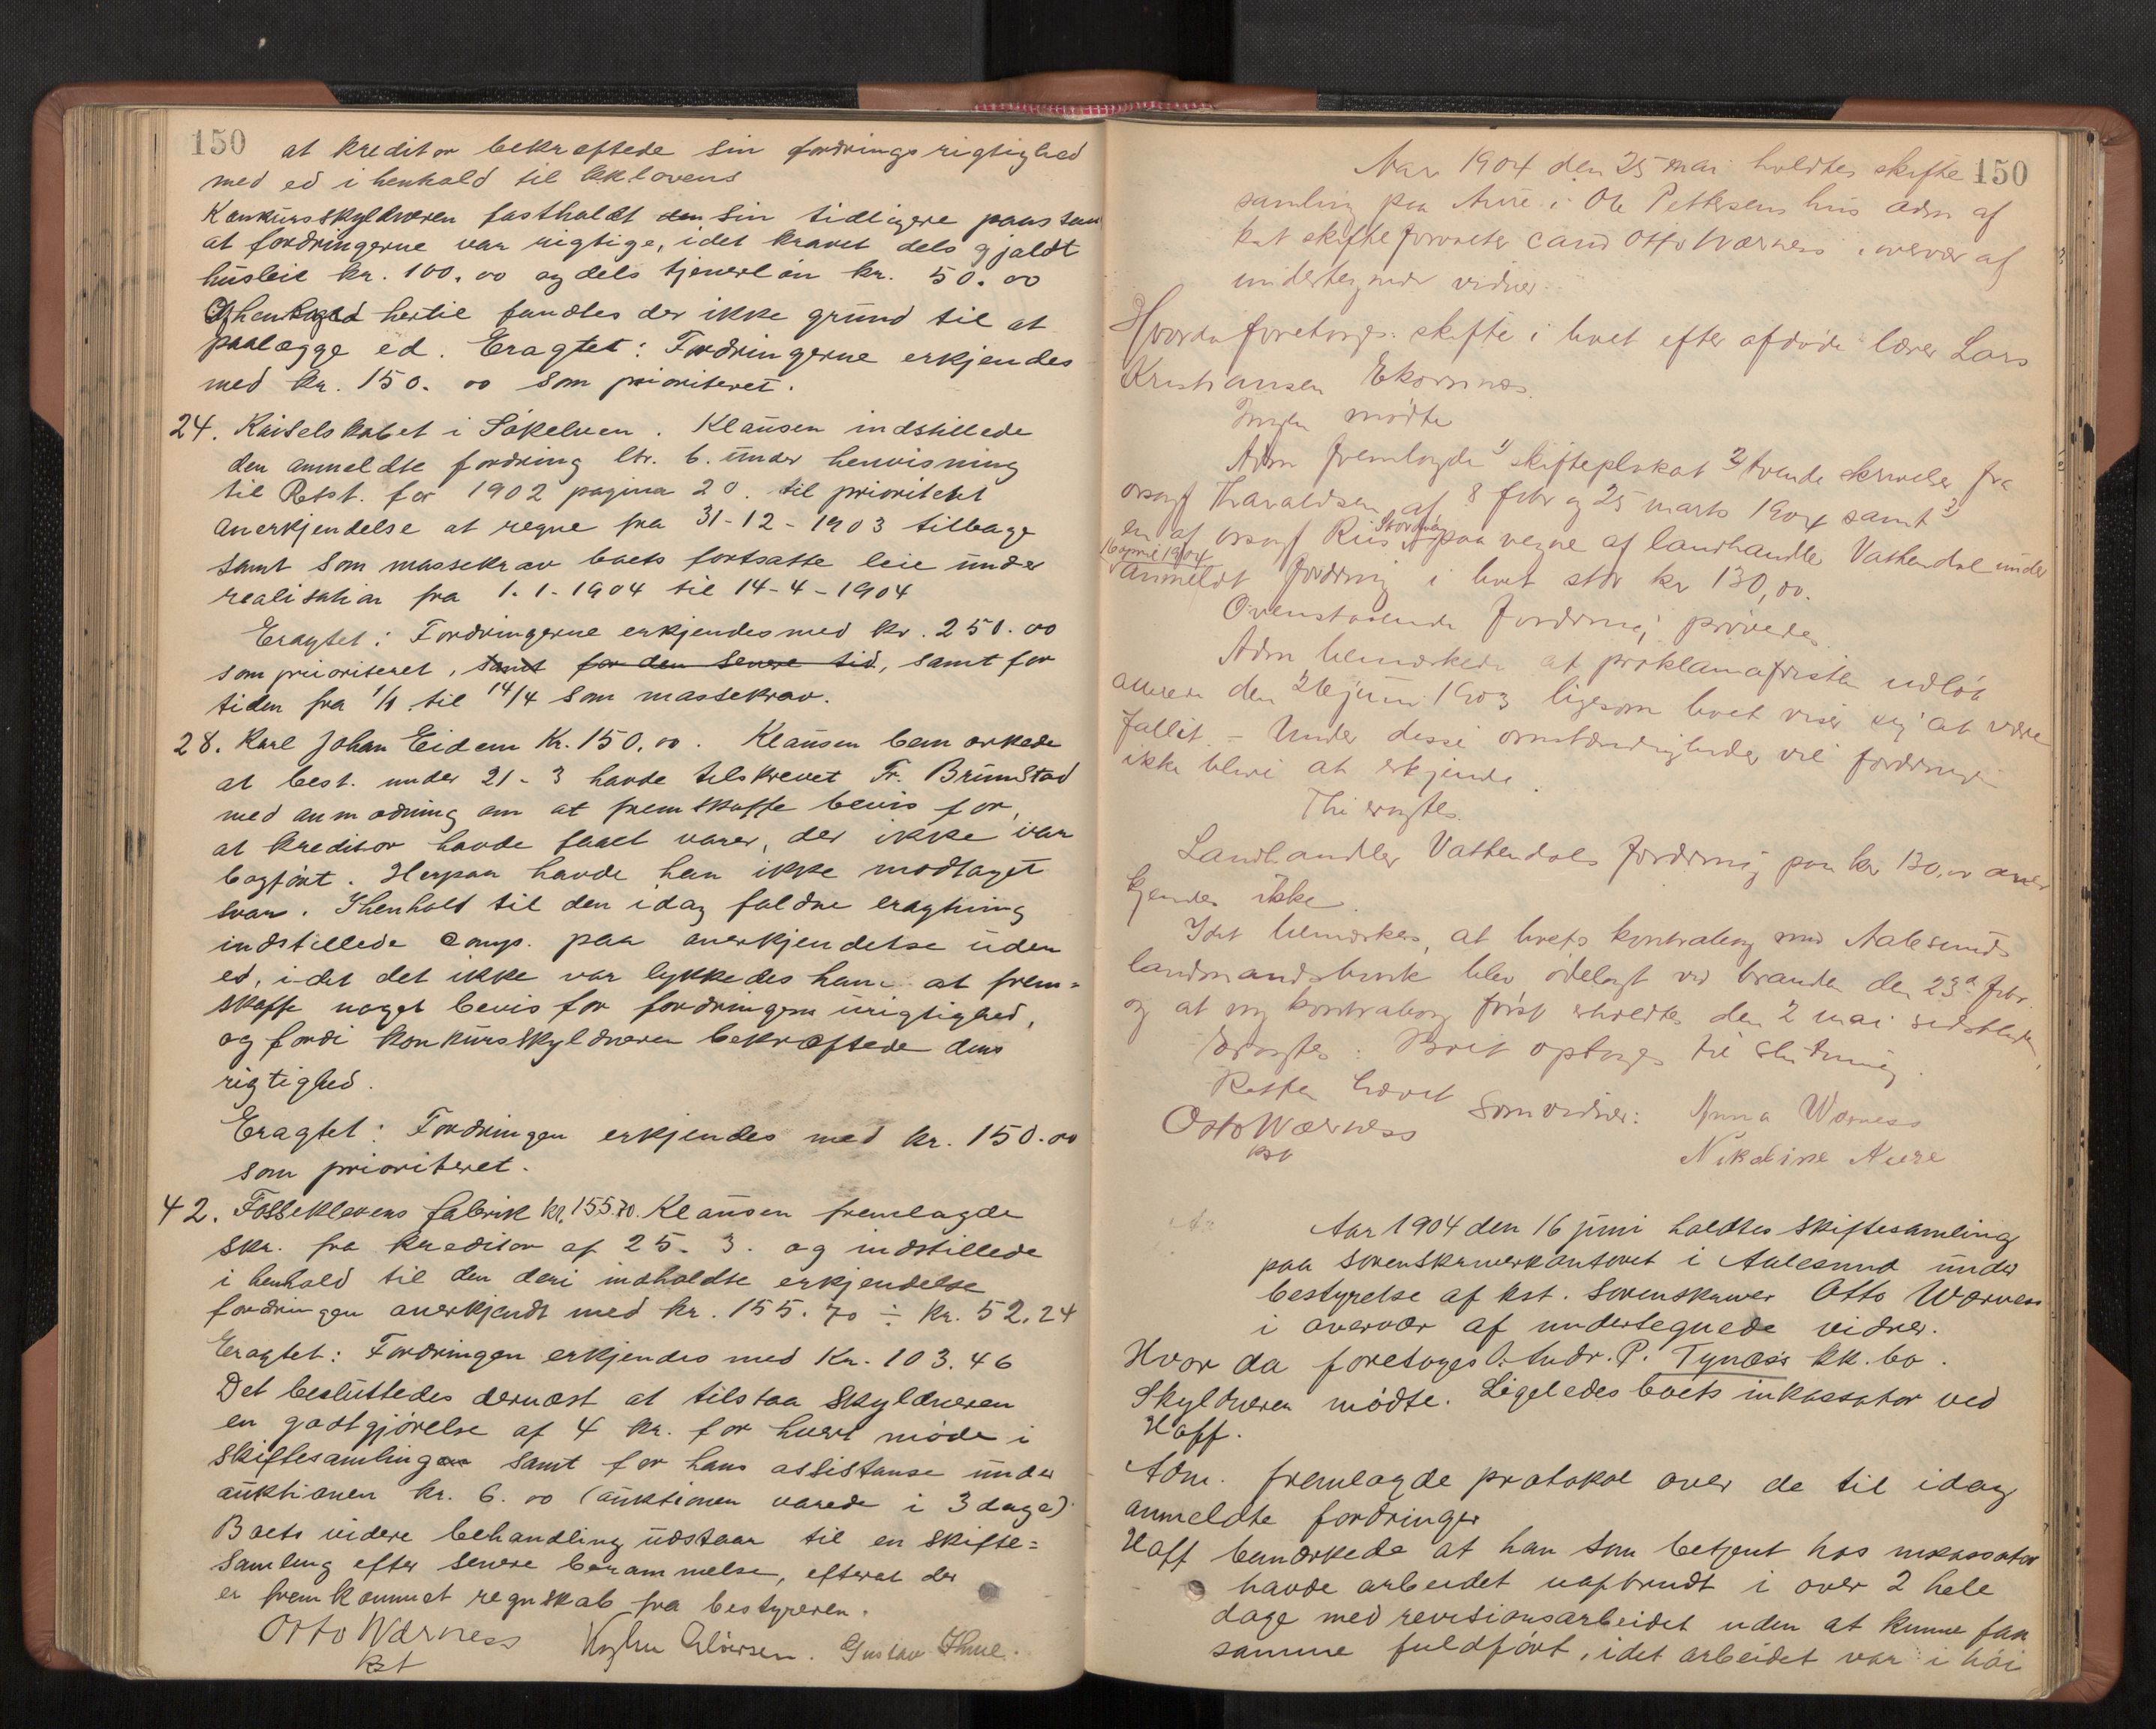 150
at kreditor bekræftede sin fordrings rigtighed
med ed i henhold til kklovens
Konkursskyldneren fastholdt den sin tidligere paastan
at fordringerne var rigtige, idet kravet dels gjaldt
husleie kr. 100.00 og dels tjenerløn kr. 50.00
I henhold hertil fandtes der ikke grund til at
paalægge ed. Eragtet: Fordringerne erkjendes
med kr. 150.00 som prioriteret.
24. Kaiselskabet i Søkelven. Klausen indstillede
den anmeldte fordring ltr. b. under henvisning
til Retst. for 1902 pagina 20. til prioritet
anerkjendelse at regne fra 31-12-1903 tilbage
samt som massekrav boets fortsatte leie under
realisation fra 1.1.1904 til 14-4-1904
Eragtet: Fordringerne erkjendes med kr. 250.00
som prioriteret, samt for den senere tid, samt for
tiden fra 1/1 til 14/4 som massekrav.
28. Karl Johan Eidem Kr. 150.00. Klausen bemærkede
at best. under 21-3 havde tilskrevet Fr. Brunstad
med anmodning om at fremskaffe bevis for,
at kreditor havde faaet varer, der ikke var
bogført. Herpaa havde han ikke modtaget
svar. I henhold til den idag faldne eragtning
indstillede Comp. paa anerkjendelse uden
ed, idet det ikke var lykkedes ham at frem=
skaffe noget bevis for fordringens urigtighed,
og fordi konkursskyldneren bekræftede dens
rigtighed.
Eragtet: Fordringen erkjendes med kr. 150.00
som prioriteret.
42. Fosseklevens fabrik kr. 155.70. Klausen fremlagde
skr. fra kreditor af 25.3. og indstillede
i henhold til den deri indholdte erkjendelse
fordringen anerkjendt med kr. 155.70 ÷ kr. 52.24
Eragtet: Fordringen erkjendes med Kr. 103.46
Det besluttedes dernæst at tilstaa skyldneren
en godtgjørelse af 4 kr. for hvert møde i
skiftesamlingen samt for hans assistanse under
auktionen kr. 6.00 (auktionen varede i 3 dage)
Boets videre behandling udstaar til en skifte=
samling efter senere berammelse, efterat der
er fremkommet regnskab fra bestyreren.
Otto Wærness
kst
Gustav
150
Aar 1904 den 25 mai holdtes skifte
samling paa Aure i Ole Pettersens hus adm af
kst skifteforvalter cand Otto Wærness i overvær af
undertegnede vidner.
Hvorda foretoges: skifte i boet efter afdøde lærer Lars
Kristiansen Ekornnæs.
Ingen mødte
Adm fremlagde 1) skifteplakat 2) tvende skrivelser fra
orsagf Haraldsen af 8 febr og 25 marts 1904 samt 3)
en af orsagf Riis Stordal paa vegne af landhandler Vatkendal under
16 april 1904
anmeldt fordring i boet stor kr 130,00.
Ovenstaaende fordring prøvedes
Adm bemærkede at proklamafristen udløb
allerede den 26 juni 1903 ligesom boet viser sig at være
fallit. - Under disse omstændigheder vil fordringen
ikke blive at erkjende.
Thi eragtes.
Landhandler Vatkendals fordring paa kr 130,00 aner
kjendes ikke
Idet bemærkes, at boets kontrabog med Aalesunds
landmandsbank blev ødelagt ved branden den 23d
og at ny kontrabog først erholdtes den 2 mai sidstleden,
Eragtes: Boet optages til slutning.
Retten hævet
Otto Wærness
kst
Som vidner: Anna Wærness
Nikoline Aure
Aar 1904 den 16 juni holdtes skiftesamling
paa sorenskriverkontoret i Aalesund under
bestyrelse af kst. sorenskriver Otto Wærness
i overvær af undertegnede vidner.
Hvor da foretoges A. Andr. P. Tynæs's kk.bo.
Skyldneren mødte. Ligeledes boets inkassator ved
Hoff.
Adm. fremlagde protokol over de til idag
anmeldte fordringer
Hoff bemærkede at han som betjent hos inkassator
havde arbeidet uafbrudt i over 2 hele
dage med revisionsarbeidet uden at kunne faa
samme fuldført, idet arbeidet var i høi